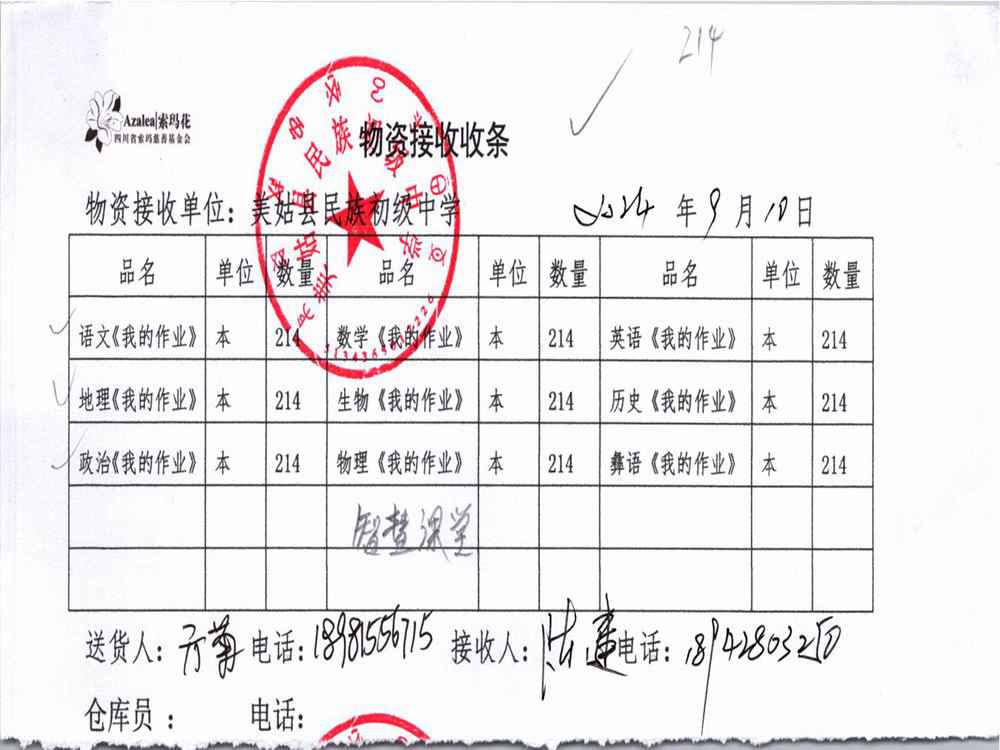 214
Azalea|索玛花
四川省索玛慈善基金会
物资接收收条
物资接收单位：美姑县民族初级中学 2024 年 9 月 10 日
品名 单位 数量 品名 单位 数量 品名 单位 数量
语文《我的作业》 本 214 数学《我的作业》 本 214 英语《我的作业》 本 214
地理《我的作业》 本 214 生物《我的作业》 本 214 历史《我的作业》 本 214
政治《我的作业》 本 214 物理《我的作业》 本 214 彝语《我的作业》 本 214
智慧课堂
送货人： 电话：18981556715 接收人： 电话：
仓库员 ： 电话：
美姑县民族初级中学